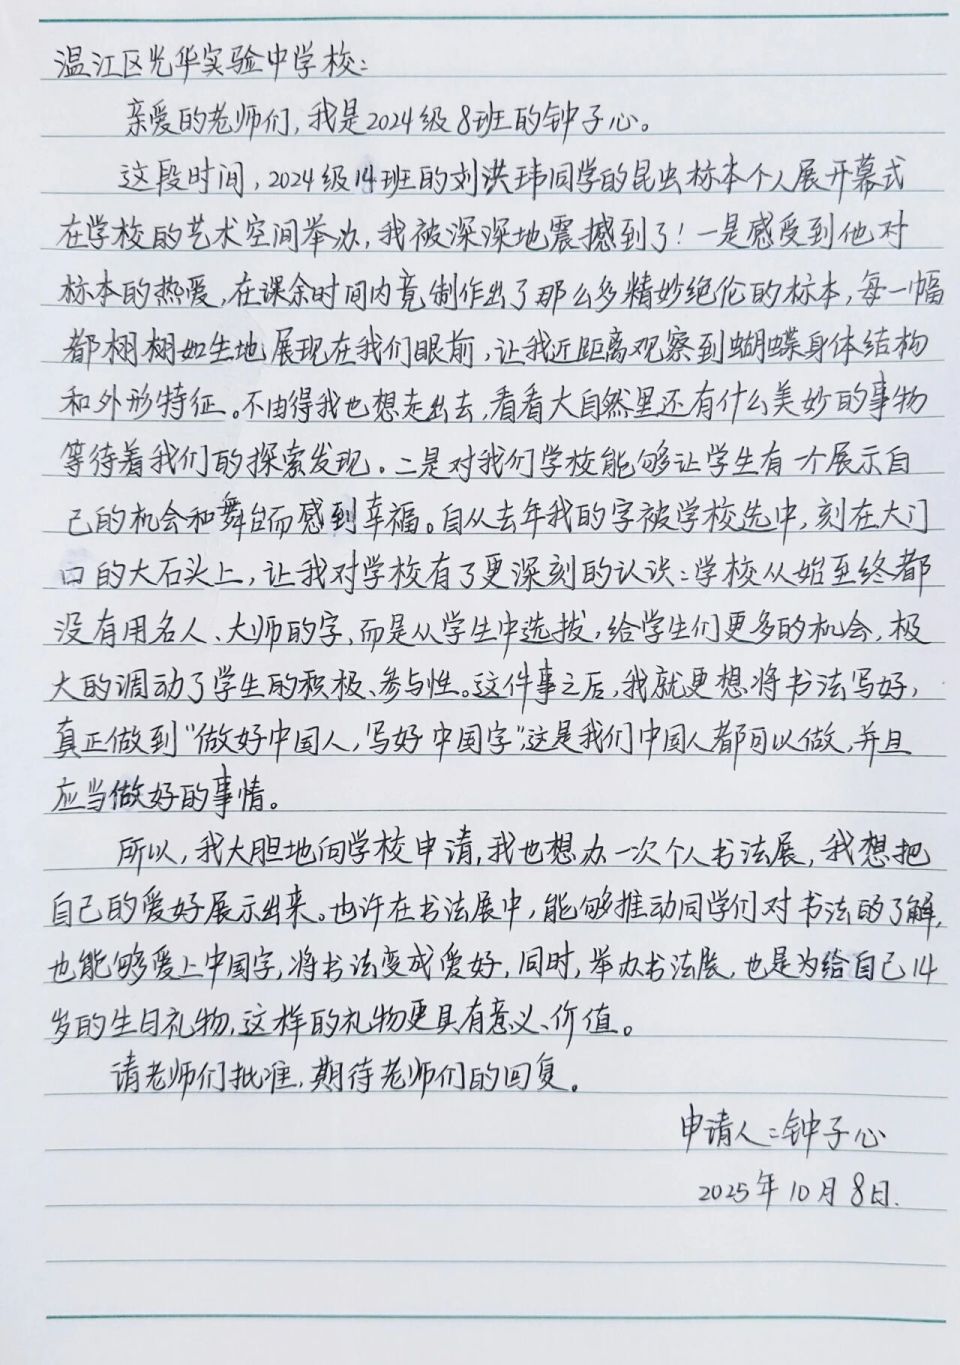 温江区光华实验中学校：
亲爱的老师们，我是2024级8班的钟子心。
这段时间，2024级14班的刘洪玮同学的昆虫标本个人展开幕式
在学校的艺术空间举办，我被深深地震撼到了！一是感受到他对
标本的热爱，在课余时间内竟制作出了那么多精妙绝伦的标本，每一幅
都栩栩如生地展现在我们眼前，让我近距离观察到蝴蝶身体结构
和外形特征。不由得我也想走出去，看看大自然里还有什么美妙的事物
等待着我们的探索发现。二是对我们学校能够让学生有一个展示自
己的机会和舞台而感到幸福。自从去年我的字被学校选中，刻在大门
口的大石头上，让我对学校有了更深刻的认识：学校从始至终都
没有用名人、大师的字，而是从学生中选拔，给学生们更多的机会，极
大的调动了学生的积极、参与性。这件事之后，我就更想将书法写好，
真正做到“做好中国人，写好中国字”这是我们中国人都可以做，并且
应当做好的事情。
所以，我大胆地向学校申请，我也想办一次个人书法展，我想把
自己的爱好展示出来。也许在书法展中，能够推动同学们对书法的了解，
也能够爱上中国字，将书法变成爱好，同时，举办书法展，也是为给自己14
岁的生日礼物，这样的礼物更具有意义、价值。
请老师们批准，期待老师们的回复。
申请人：钟子心
2025年10月8日.